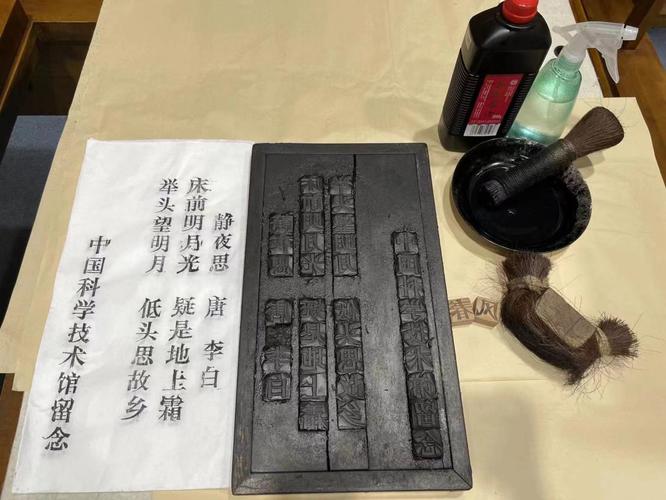 静夜思 唐 李白
床前明月光 疑是地上霜
举头望明月 低头思故乡
中国科学技术馆留念